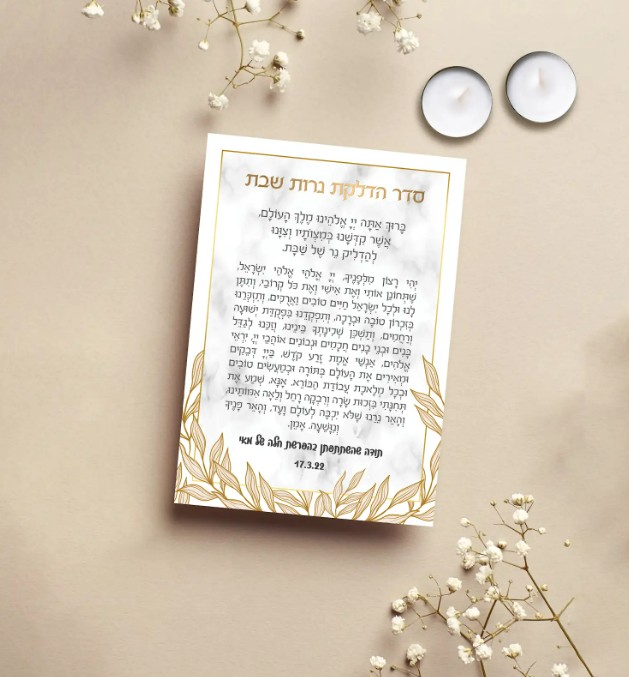 סדר הדלקת נרות שבת
בָּרוּךְ אַתָּה יְיָ אֱלֹהֵינוּ מֶלֶךְ הָעוֹלָם,
אֲשֶׁר קִדְּשָׁנוּ בְּמִצְוֹתָיו וְצִוָּנוּ
לְהַדְלִיק נֵר שֶׁל שַׁבָּת.
יְהִי רָצוֹן מִלְּפָנֶיךָ, יְיָ אֱלֹהַי אֱלֹהֵי יִשְׂרָאֵל,
שֶׁתְּחוֹנֵן אוֹתִי וְאֶת אִישִׁי וְאֶת כֹּל קְרוֹבַי, וְתִתֵּן
לָנוּ וּלְכָל יִשְׂרָאֵל חַיִּים טוֹבִים וַאֲרֻכִּים, וְתִזְכְּרֵנוּ
בְּזִכְרוֹן טוֹבָה וּבְרָכָה, וְתִפְקְדֵנוּ בִּפְקֻדַּת יְשׁוּעָה
וְרַחֲמִים, וְתַשְׁכֵּן שְׁכִינָתְךָ בֵּינֵינוּ, וְזַכֵּנוּ לְגַדֵּל
בָּנִים וּבְנֵי בָנִים חֲכָמִים וּנְבוֹנִים אוֹהֲבֵי יְיָ, יִרְאֵי
אֱלֹהִים, אַנְשֵׁי אֱמֶת זֶרַע קֹדֶשׁ, בַּיְיָ דְּבֵקִים
וּמְאִירִים אֶת הָעוֹלָם בְּתוֹרָה וּבְמַעֲשִׂים טוֹבִים
וּבְכָל מְלֶאכֶת עֲבוֹדַת הַבּוֹרֵא. אָנָּא, שְׁמַע אֶת
תְּחִנָּתִי בִּזְכוּת שָׂרָה וְרִבְקָה רָחֵל וְלֵאָה אִמּוֹתֵינוּ,
וְהָאֵר נֵרֵנוּ שֶׁלֹּא יִכְבֶּה לְעוֹלָם וָעֶד, וְהָאֵר פָּנֶיךָ
וְנִוָּשֵׁעָה. אָמֵן.
תודה שהשתתפתן בהפרשת חלה של מאי
17.3.22